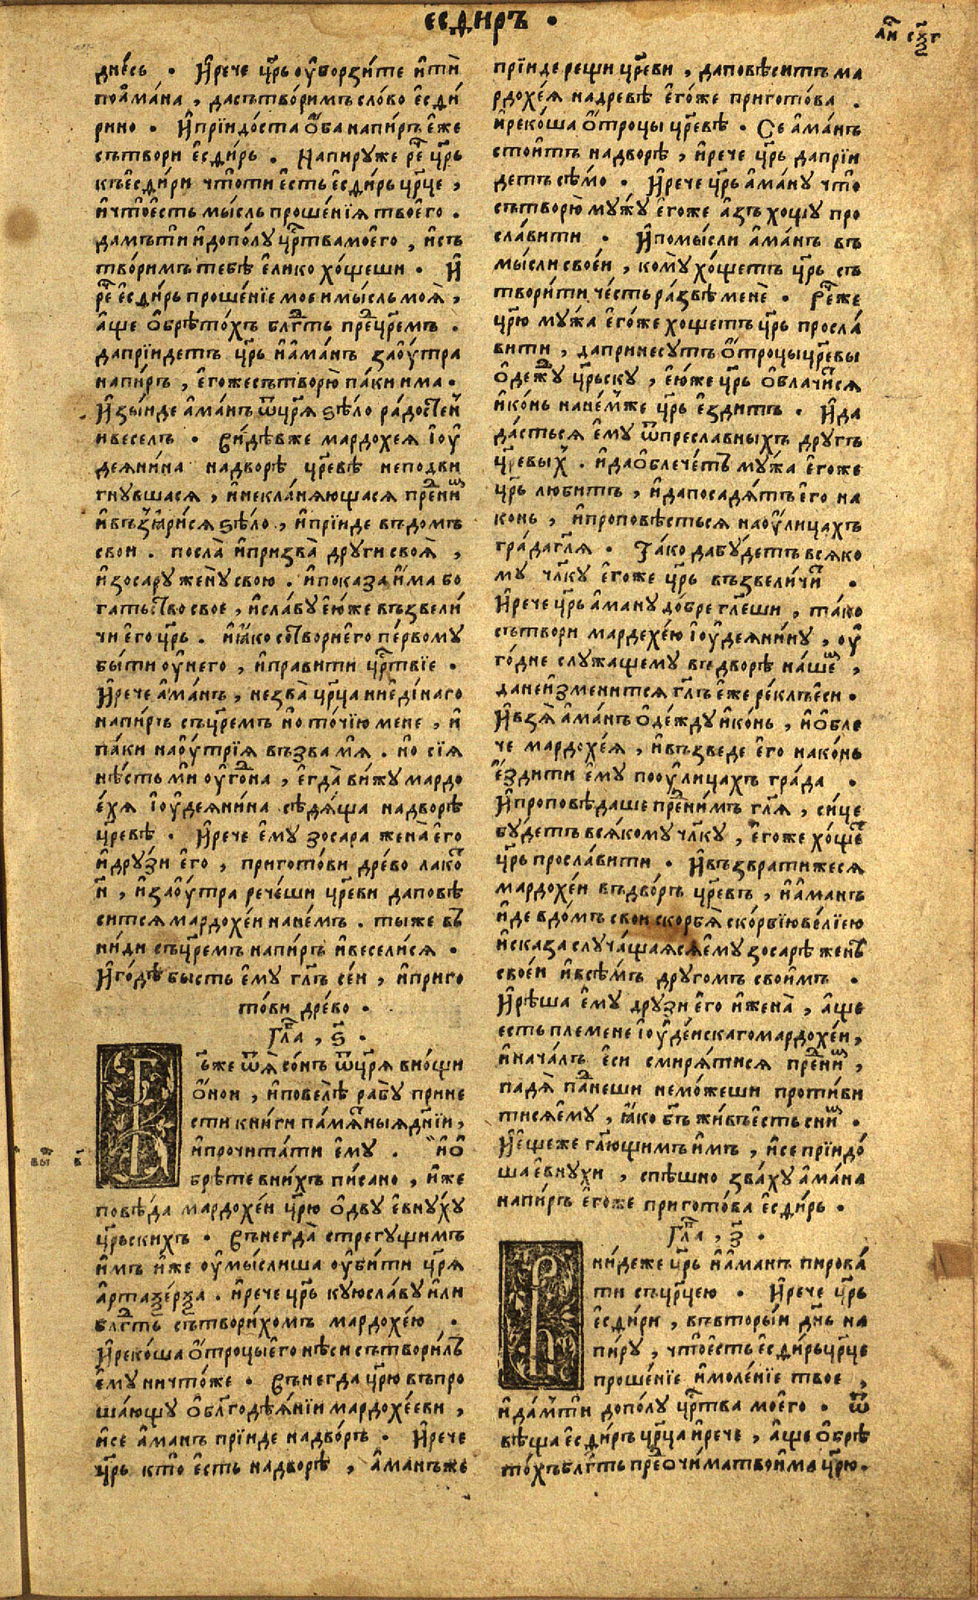 есѳиръ .
дне́сь . И҆рече цр҃ь оу҆ворзи́те и҆ти̑
поа҆ма́на , дасътво́римъ сло́во є҆сѳи́
рино . И҆прїидо́ста о҆́ба напи́ръ є҆́же
сътвори є҆сѳи́рь . Напируже рѐ цр҃ь
къ є҆сѳи́ри что̀ ти є҆сть є҆сѳи́рь цр҃це ,
и҆ что̀ є҆сть мы́сль проше́нїѧ твоего̀ .
да́мъ ти и҆допо́лу црⷭ҇тва моего̀ , и҆ съ
тво́римъ тебѣ̀ є҆лико хо́щеши . И҆
рѐ є҆сѳи́рь проше́нїе мое и҆мы́сль моѧ̀ ,
а҆́ще о҆брѣто́хъ блг҇ть преⷣ цр҃емъ .
да прїи́детъ цр҃ь и҆а҆ма́нъ заоу҆́тра
напи́ръ , є҆го́же сътворю̀ па́ки и҆́ма .
И҆зы́иде а҆ма́нъ ѿ цр҃ѧ ѕѣло ра́достеⷩ҇
и҆ве́селъ . Ви́дѣв же мардохе́ѧ і҆оу҆
деѧни́на надворѣ̀ цр҃евѣ неподви
гнувшасѧ , и҆некла́нѧющасѧ преⷣни́ⷨ
и҆възъѧри́сѧ ѕѣло , и҆прїи́де въ до́мъ
свои . посла̀ и҆призва̀ други своѧ̀ ,
и҆зосару жену̀ свою . и҆показа и҆́ма бо
га́тьство свое , и҆сла́ву є҆ю́же възвели́
чи е҆го цр҃ь . и҆ꙗ҆ко сотвори е҆го пе́рвому
бы́ти оу҆него , и҆пра́вити црⷭ҇твїе .
И҆рече а҆ма́нъ , незва̀ цр҃ца ни є҆ди́наго
напи́ръ съ цр҃емъ но то́чїю мене , и҆
па́ки на оу҆́трїѧ възва́ мѧ . но сїѧ
нѣ́сть ми оу҆го́ⷣна , є҆гда̀ ви́жу мардо
е́хѧ і҆оу҆деѧни́на сѣдѧ́ща надворѣ̀
цр҃евѣ . И҆рече є҆му зосара жена̀ е҆го
и҆дру́зи є҆го , приготови дре́во лако́ⷮ
н҃ , и҆заоу҆́тра рече́ши цр҃еви даповѣ
ситсѧ мардохе́и нане́мъ . ты́ же въ
ни́ди съ цр҃емъ напи́ръ и҆весели́сѧ .
И҆го́дѣ бы́сть є҆му гл҃ъ се́и , и҆приго
то́ви дре́во .
Гла̀ , ѕ҃ .
Бг҃ъ же ѿѧ̀ со́нъ ѿ цр҃ѧ в но́щи
о҆́нои , и҆повелѣ̀ рабу̀ прине
сти кни́ги па́мѧтныѧ дн҃їи ,
и҆прочита́ти є҆му . и҆ о҆
брѣ́те в ни́хъ пи́сано , и҆́же
повѣ́да мардохе́и цр҃ю о҆дву є҆вну́ху
цр҃ьскихъ . Вънегда̀ стрегу́щимъ
и҆мъ и҆́же оу҆мы́слиша оу҆би́ти цр҃ѧ
а҆ртаѯе́рѯа . и҆рече цр҃ь ку́ю сла́ву и҆́ли
блг҇ть сътвори́хомъ мардохе́ю .
И҆реко́ша о҆́троцы є҆го нѣ́си сътвори́лъ
є҆му ничто́же . Вънегда цр҃ю въпро
ша́ющу о҆ блг҃одѣѧ́нїи мардохе́еви ,
и҆се а҆ма́нъ прїи́де надво́ръ . И҆рече
цр҃ь кто̀ є҆сть надворѣ̀ , а҆ма́нъ же
лиⷭ҇ сѯ҃г
прїи́де рещи цр҃еви , даповѣ́ситъ ма
рдохе́ѧ надревѣ̀ є҆го́же пригото́ва .
и҆реко́ша о҆́троцы цр҃евѣ . Се а҆ма́нъ
стои́тъ надворѣ̀ , и҆рече цр҃ь дапрїи
детъ сѣ́мо . И҆рече цр҃ь а҆ма́ну что̀
сътворю̀ му́жу є҆гоже а҆́зъ хощу̀ про
сла́вити . И҆помы́сли а҆ма́нъ въ
мы́сли свое́и , кому̀ хо́щетъ цр҃ь съ
твори́ти че́сть ра́звѣ менѐ . Ре́ же
цр҃ю му́жа є҆го́же хощетъ цр҃ь просла́
вити , дапринесу́тъ о҆́троцы цр҃евы
о҆де́жⷣу цр҃ьску , є҆ю́же цр҃ь о҆блачи́сѧ
и҆ко́нь нане́мже цр҃ь е҆здитъ . И҆да
да́стьсѧ є҆му ѿ пресла́вныхъ другъ
цр҃евыⷯ . и҆да о҆блече́тъ му́жа є҆го́же
цр҃ь лю́битъ , и҆дапосадѧ́тъ є҆го на
ко́нь , и҆проповѣ́стьсѧ на оу҆́лицахъ
гра́да гл҃ѧ . Та́ко да бу́детъ всѧко
му чл҃ку є҆гоже цр҃ь възвели́чиⷮ .
И҆рече цр҃ь а҆ману до́бре гл҃еши , та́ко
сътвори мардехе́ю і҆оу҆деѧни́ну , оу҆
го́дне служа́щему въ дворѣ на́шеⷨ ,
да неи҆змени́тсѧ гл҃ъ є҆́же ре́клъ є҆си .
И҆взѧ̀ а҆ма́нъ о҆де́жду и҆ко́нь , и҆о҆бле
че мардохе́ѧ , и҆възведе є҆го нако́нь
е҆́здити є҆му по оу҆́лицахъ гра́да .
И҆проповѣ́даше преⷣни́мъ гл҃ѧ , си́це
бу́детъ всѧ́кому чл҃ку , є҆го́же хо́щеⷮ
цр҃ь просла́вити . И҆възврати́жесѧ
мардохе́и въ дво́ръ цр҃евъ , и҆а҆ма́нъ
и҆́де в до́мъ свои скорбѧ̀ ско́рбїю ве́лїею
и҆сказа случа́щаѧсѧ є҆му зосарѣ женѣ̀
свое́и и҆всѣ́мъ другомъ свои́мъ .
И҆рѣ́ша є҆му дру́зи є҆го и҆жена̀ , а҆ще
есть пле́мене і҆оу҆де́искаго мардохе́и ,
и҆нача́лъ є҆си смирѧ́тисѧ преⷣни́ⷨ ,
па́даѧ паде́ши немо́жеши проти́ви
тисѧ є҆му , ꙗ҆́ко бг҃ъ жи́въ є҆сть сни́ⷨ .
И҆є҆ще́же гл҃ющимъ и҆́мъ , и҆се прїидо́
ша є҆вну́хи , спѣ́шно зва́ху а҆ма́на
напи́ръ є҆го́же пригото́ва є҆сѳи́рь .
Гла̀ , з҃ .
Вни́де же цр҃ь и҆а҆ма́нъ пирова́
ти съ цр҃цею . И҆рече цр҃ь
є҆сѳи́ри , въ вторы́и дн҃ь на
пиру̀ , что̀ є҆сть є҆сѳи́рь цр҃це
проше́нїе и҆моле́нїе твое ,
и҆да́мъти до по́лу црⷭ҇тва моего̀ . ѿ
вѣща є҆сѳи́ръ цр҃ца и҆рече , а҆́ще о҆брѣ
то́хъ блг҇ть преⷣ о҆чи́ма твои́ма цр҃ю .